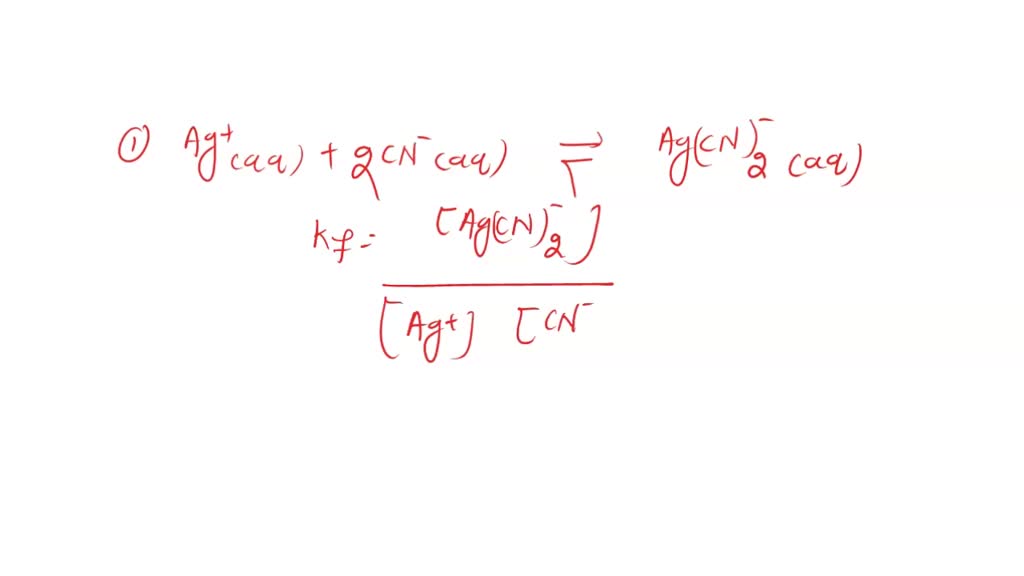 ① Ag⁺(aq) + 2CN⁻(aq) ⇌ Ag(CN)₂⁻(aq)
kf = [Ag(CN)₂⁻]
[Ag+] [CN⁻